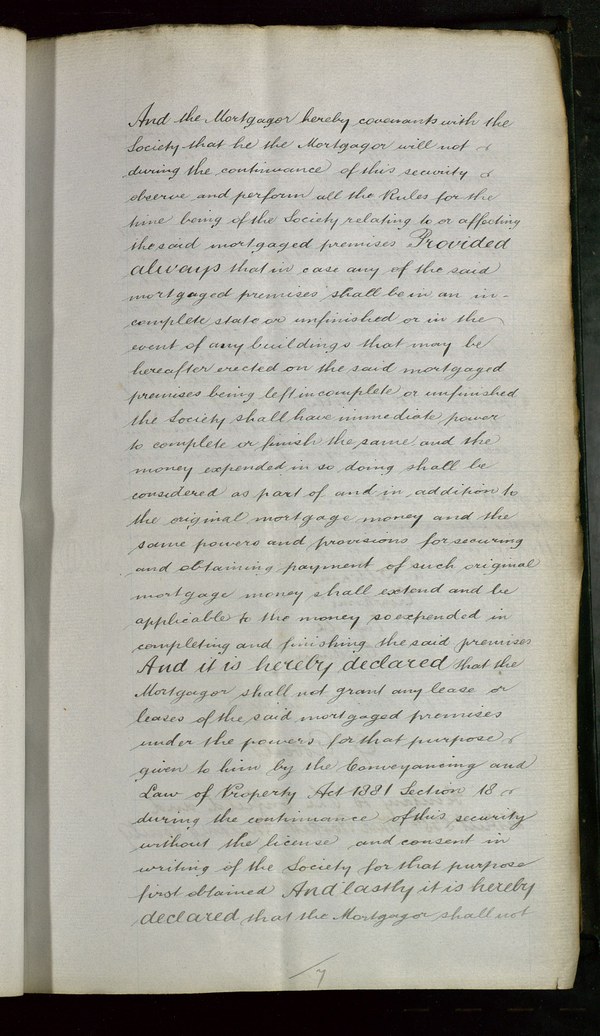 And the Mortgagor hereby covenants with the
Society that he the Mortgagor will not
during the continuance of this security
observe and perform all the Rules for the
time being of the Society relating to or affecting
the said mortgaged premises Provided
always that in case any of the said
mortgaged premises shall be in an in-
complete state or unfinished or in the
event of any buildings that may be
hereafter erected on the said mortgaged
premises being left incomplete or unfinished
the Society shall have immediate power
to complete or finish the same and the
money expended in so doing shall be
considered as part of and in addition to
the original mortgage money and the
same powers and provisions for securing
and obtaining payment of such original
mortgage money shall extend and be
applicable to the money so expended in
completing and finishing the said premises
And it is hereby declared that the
Mortgagor shall not grant any lease or
leases of the said mortgaged premises
under the powers for that purpose
given to him by the Conveyancing and
Law of Property Act 1881 Section 18
during the continuance of this security
without the license and consent in
writing of the Society for that purpose
first obtained And lastly it is hereby
declared that the Mortgagor shall not
7